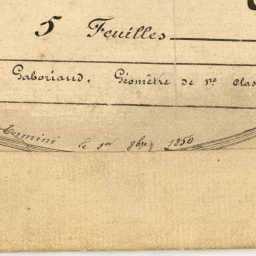 5 Feuilles
Gaboriaud, Géomètre de 1re clas
Terminé le 1er 9bre, 1850